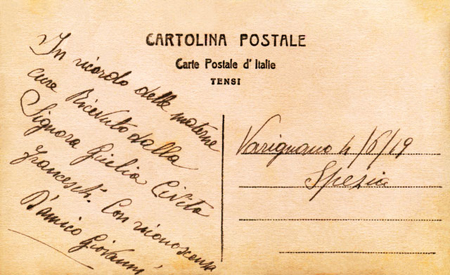 CARTOLINA POSTALE
Carte Postale d' Italie
TENSI
In ricordo delle materne
cure Ricevute dalla
Signora Giulia Civita
Franceseti. Con riconoscenza
D'amico Giovanni
Varignano 4/6/19
Spezia